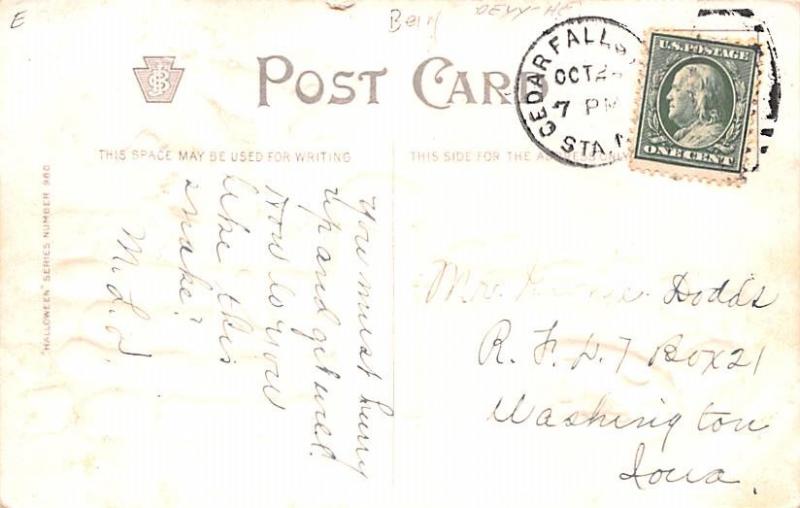 E
POST CARD
CEDAR FALLS
OCT 2
7 PM
STA. 1
U.S. POSTAGE
ONE CENT
THIS SPACE MAY BE USED FOR WRITING
THIS SIDE FOR THE ADDRESS ONLY
"HALLOWEEN" SERIES NUMBER 980
You must hurry
up and get well.
How do you
like this
snake?
M. L. D.
Mr. Dodds
R. F. D. 7 Box 21
Washington
Iowa.